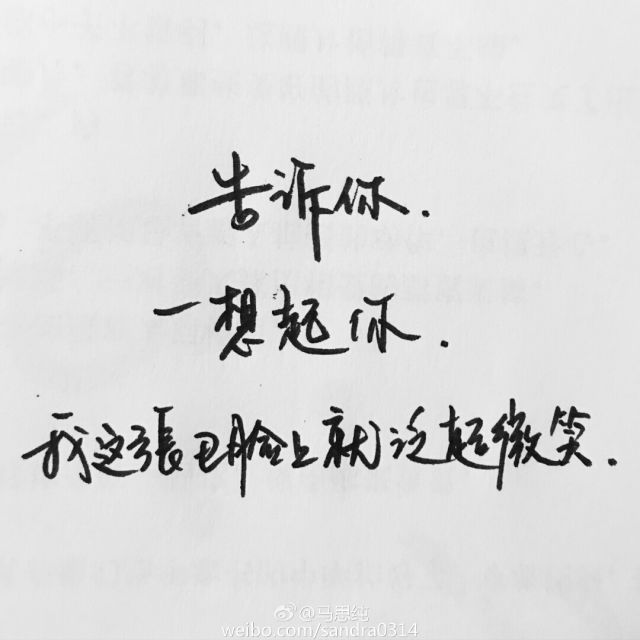 告诉你.
一想起你.
我这張丑脸上就泛起微笑.
@马思纯
weibo.com/sandra0314